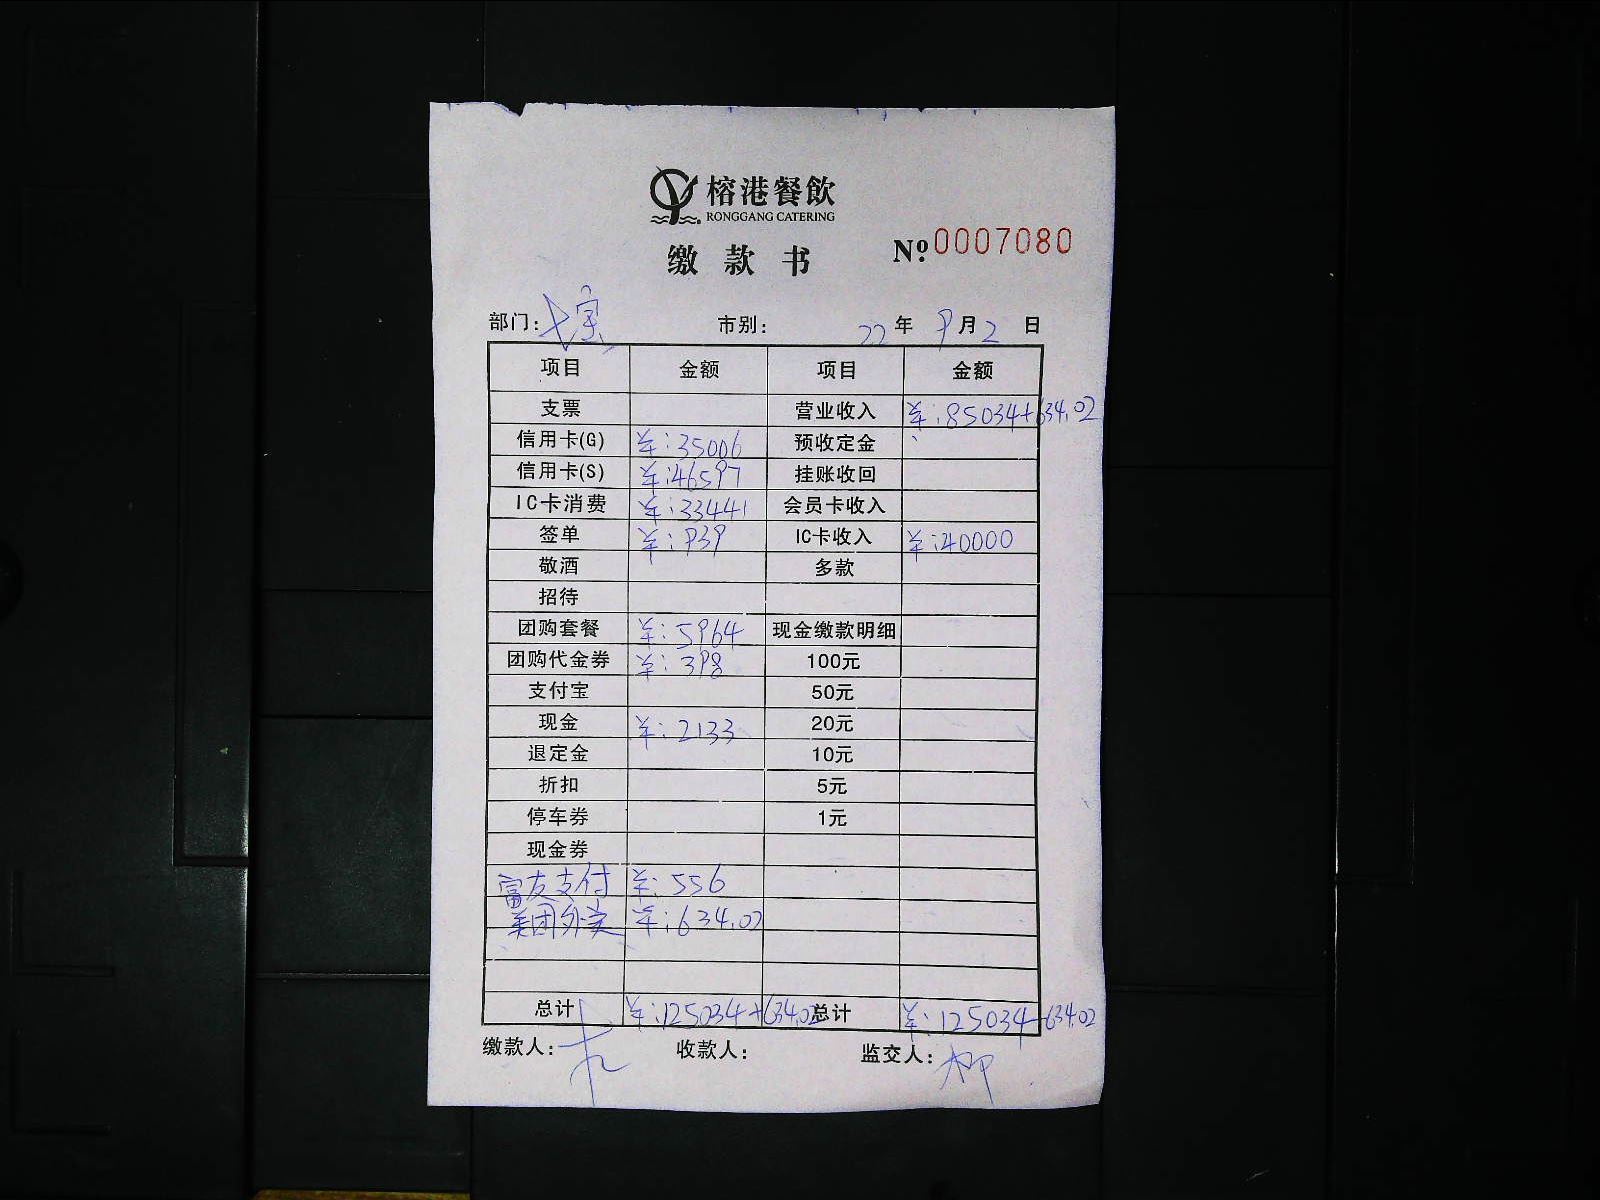 榕港餐飲
RONGGANG CATERING
缴款书 №0007080
部门:七宝 市别: 22年9月2日
项目 金额 项目 金额
支票 营业收入 ¥:85034+634.02
信用卡(G) ¥:35006 预收定金
信用卡(S) ¥:46597 挂账收回
IC卡消费 ¥:33441 会员卡收入
签单 ¥:939 IC卡收入 ¥:40000
敬酒 多款
招待
团购套餐 ¥:5964 现金缴款明细
团购代金券 ¥:398 100元
支付宝 50元
现金 ¥:2133 20元
退定金 10元
折扣 5元
停车券 1元
现金券
富友支付 ¥:556
美团外卖 ¥:634.02
总计 ¥:125034+634.02 总计 ¥:125034+634.02
缴款人: 收款人: 监交人:柳